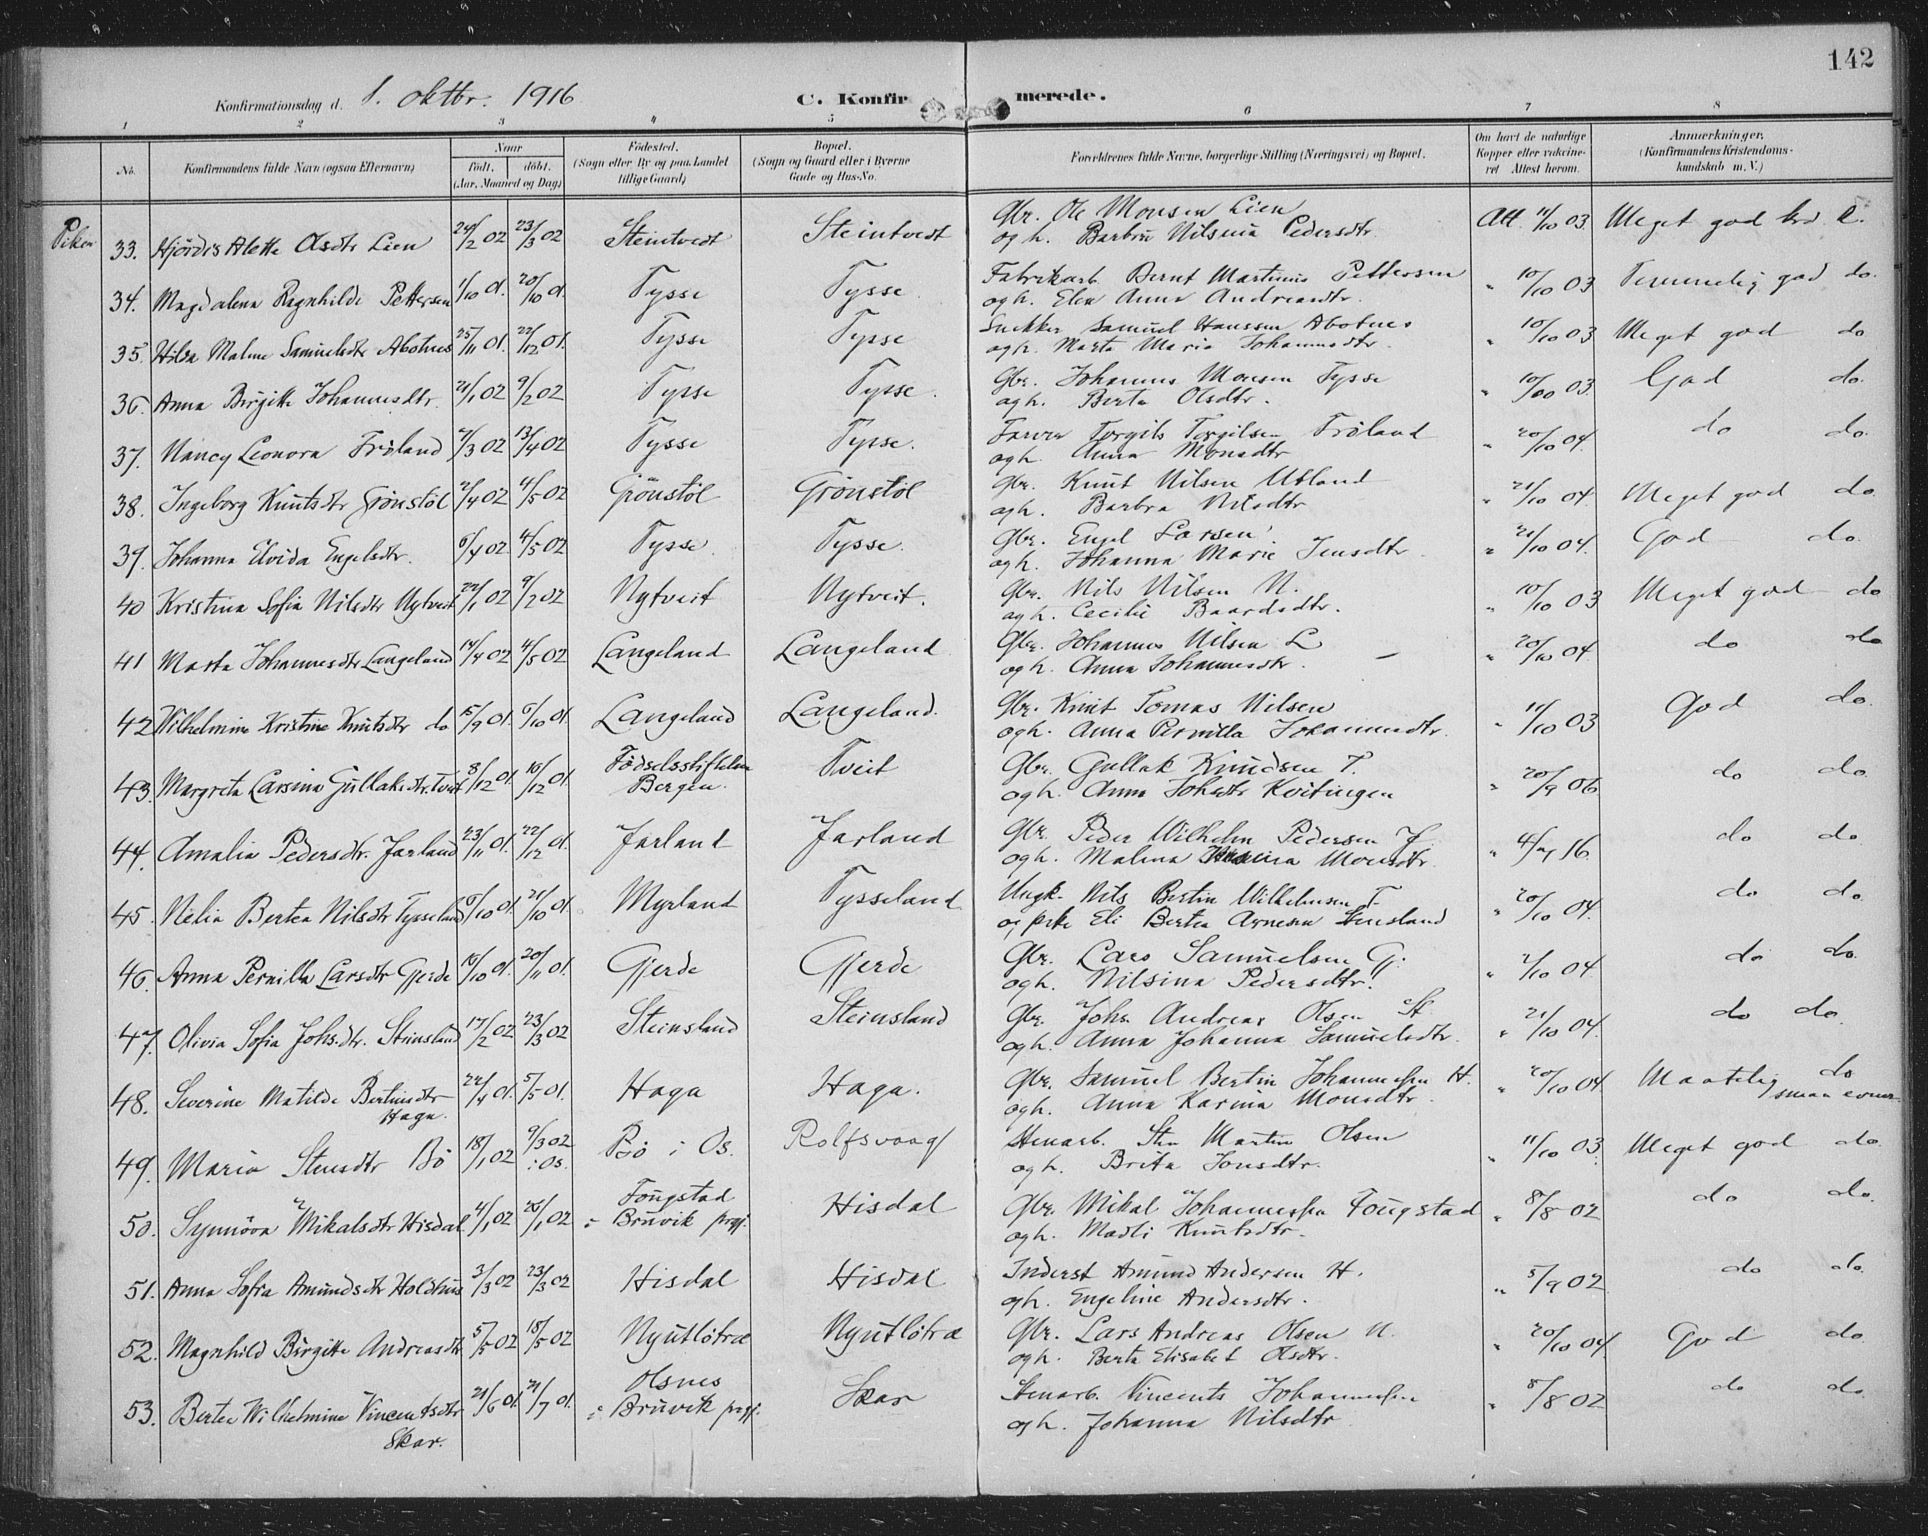 142
Konfirmationsdag d. 1. oktbr. 1916
C. Konfirmerede.
1 2 3 4 5 6 7 8
No. Konfirmandens fulde Navn (ogsaa Efternavn) Naar født, døbt. (Aar, Maaned og Dag) Fødested. (Sogn eller By og paa Landet tillige Gaard) Bopæl. (Sogn og Gaard eller i Byerne Gade og Hus-No. Forældrenes fulde Navne, borgerlige Stilling (Næringsvei) og Bopæl. Om havt de naturlige Kopper eller vakcineret Attest herom. Anmærkninger. (Konfirmandens Kristendomskundskab m. V.)
Piker
33. Hjördis Alette Olsdtr Lien 24/2 02 23/3 02 Steintvedt Steintvedt Gbr. Ole Monsen Lien Att. 11/10 03 Meget god krd. k.
og h. Barbru Nilsina Pedersdtr.
34. Magdalena Ragnhilde Pettersen 1/10 01. 20/10 01. Tysse Tysse Fabrikarb. Bernt Martinus Pettersen " 10/10 03 Temmelig god do.
og h. Elen Anna Andreasdtr.
35. Hilda Malene Samuelsdtr Abotnes 25/11 01. 22/12 01. Tysse Tysse Snekker Samuel Hanssen Abotnes " 10/10 03 Meget god do
og h. Marta Maria Johannesdtr.
36. Anna Birgitte Johannesdtr. 21/1 02 9/2 02 Tysse Tysse. Gbr. Johannes Monsen Tysse " 10/00 03. God do.
og h. Berta Olsdtr.
37. Nancy Leonora Fröland 7/3 02 13/4 02 Tysse Tysse. Farver Torgils Torgilsen Fröland " 20/10 04. do do.
og h. Anna Monsdtr
38. Ingeborg Knutsdtr Grönstöl 2/4 02 4/5 02 Grönstöl Grönstöl Gbr. Knut Nilsen Utland " 21/10 04. Meget god do.
og h. Barbra Nilsdtr
39. Johanna Elvida Engelsdtr. 6/4 02. 4/5 02 Tysse Tysse. Gbr. Engel Larsen. " 21/10 04. God do.
og h. Johanna Marie Jensdtr.
40 Kristina Sofia Nilsdtr Nytveit 22/1 02 9/2 02 Nytveit Nytveit. Gbr. Nils Nilsen N. " 10/10 03 Meget god do
og h. Cecilie Baardsdtr.
41 Marta Johannesdtr Langeland 14/4 02 4/5 02 Langeland Langeland Gbr. Johannes Nilsen L – " 20/10 04. do do
og h. Anna Johannesdtr.
42 Wilhelmine Kristine Knutsdtr do 5/9 01. 6/10 01. Langeland Langeland. Gbr. Knut Tomas Nilsen " 11/10 03 God do.
og h. Anna Pernilla Johannesdtr.
43. Margreta Larsina Gullaksdtr. Tveit 8/12 01. 16/12 01. Fødselsstiftelsen Bergen. Tveit Gbr. Gullak Knudsen T. " 20/9 06 do do.
og h. Anna Johsdtr Kvitingen
44. Amalia Pedersdtr. Jarland 23/11 01. 22/12 01. Jarland Jarland Gbr. Peder Wilhelm Pedersen J. " 16. do do
og h. Malena Monsdtr.
45. Nelia Bertea Nilsdtr Tysseland 6/10 01. 21/10 01. Myrland Tysseland Ungk. Nils Bertin Wilhelmsen T. " 20/10 04. do do.
og pike Eli Bertea Arnesen Stensland
46. Anna Pernilla Larsdtr Gjerde 16/10 01. 20/11 01. Gjerde Gjerde Gbr. Lars Samuelsen G. " 2/10 04 do do.
og h. Nilsina Pedersdtr.
47. Olivia Sofia Johs.dtr. Steinsland 17/2 02 23/3 02 Steinsland Steinsland Gbr. Johs. Andreas Olsen St " 21/10 04. do do.
og h. Anna Johanna Samuelsdtr.
48. Severine Matilde Bertinsdtr Haga. 22/4 01. 5/5 01. Haga Haga. Gbr. Samuel Bertin Johannessen H. " 20/10 04 Maatelig do smaa evner.
og h. Anna Karina Monsdtr.
49. Maria Stensdtr Bö 18/1 02 9/3 02 i Os. Bö i Os. Rolfsvaag Stenarb. Sten Martin Olsen " 11/10 03. Meget god do.
og h. Brita Jonsdtr.
50. Synnöva Mikalsdtr Hisdal 4/1 02 26/1 02 Fougstad i Bruvik prgj. Hisdal Gbr. Mikal Johannessen Fougstad " 8/8 02 do do.
og h. Madli Knutsdtr.
51. Anna Sofia Amundsdtr Holdhus 3/3 02 23/3 02 Hisdal Hisdal Inderst Amund Andersen H. " 5/9 02. do do.
og h. Engeline Andersdtr.
52. Magnhild Birgitte Andreasdtr 5/5 02 18/5 02 Nyutlötræ Nyutlötræ Gbr. Lars Andreas Olsen N. " 20/10 04. God do.
og h. Berta Elisabet Olsdtr.
53. Bertea Wilhelmine Vincentsdtr Skar. 21/6 01. 21/7 01. Olsnes i Bruvik prgj. Skar Stenarb. Vincents Johannessen " 8/8 02 do do.
og h. Johanna Nilsdtr